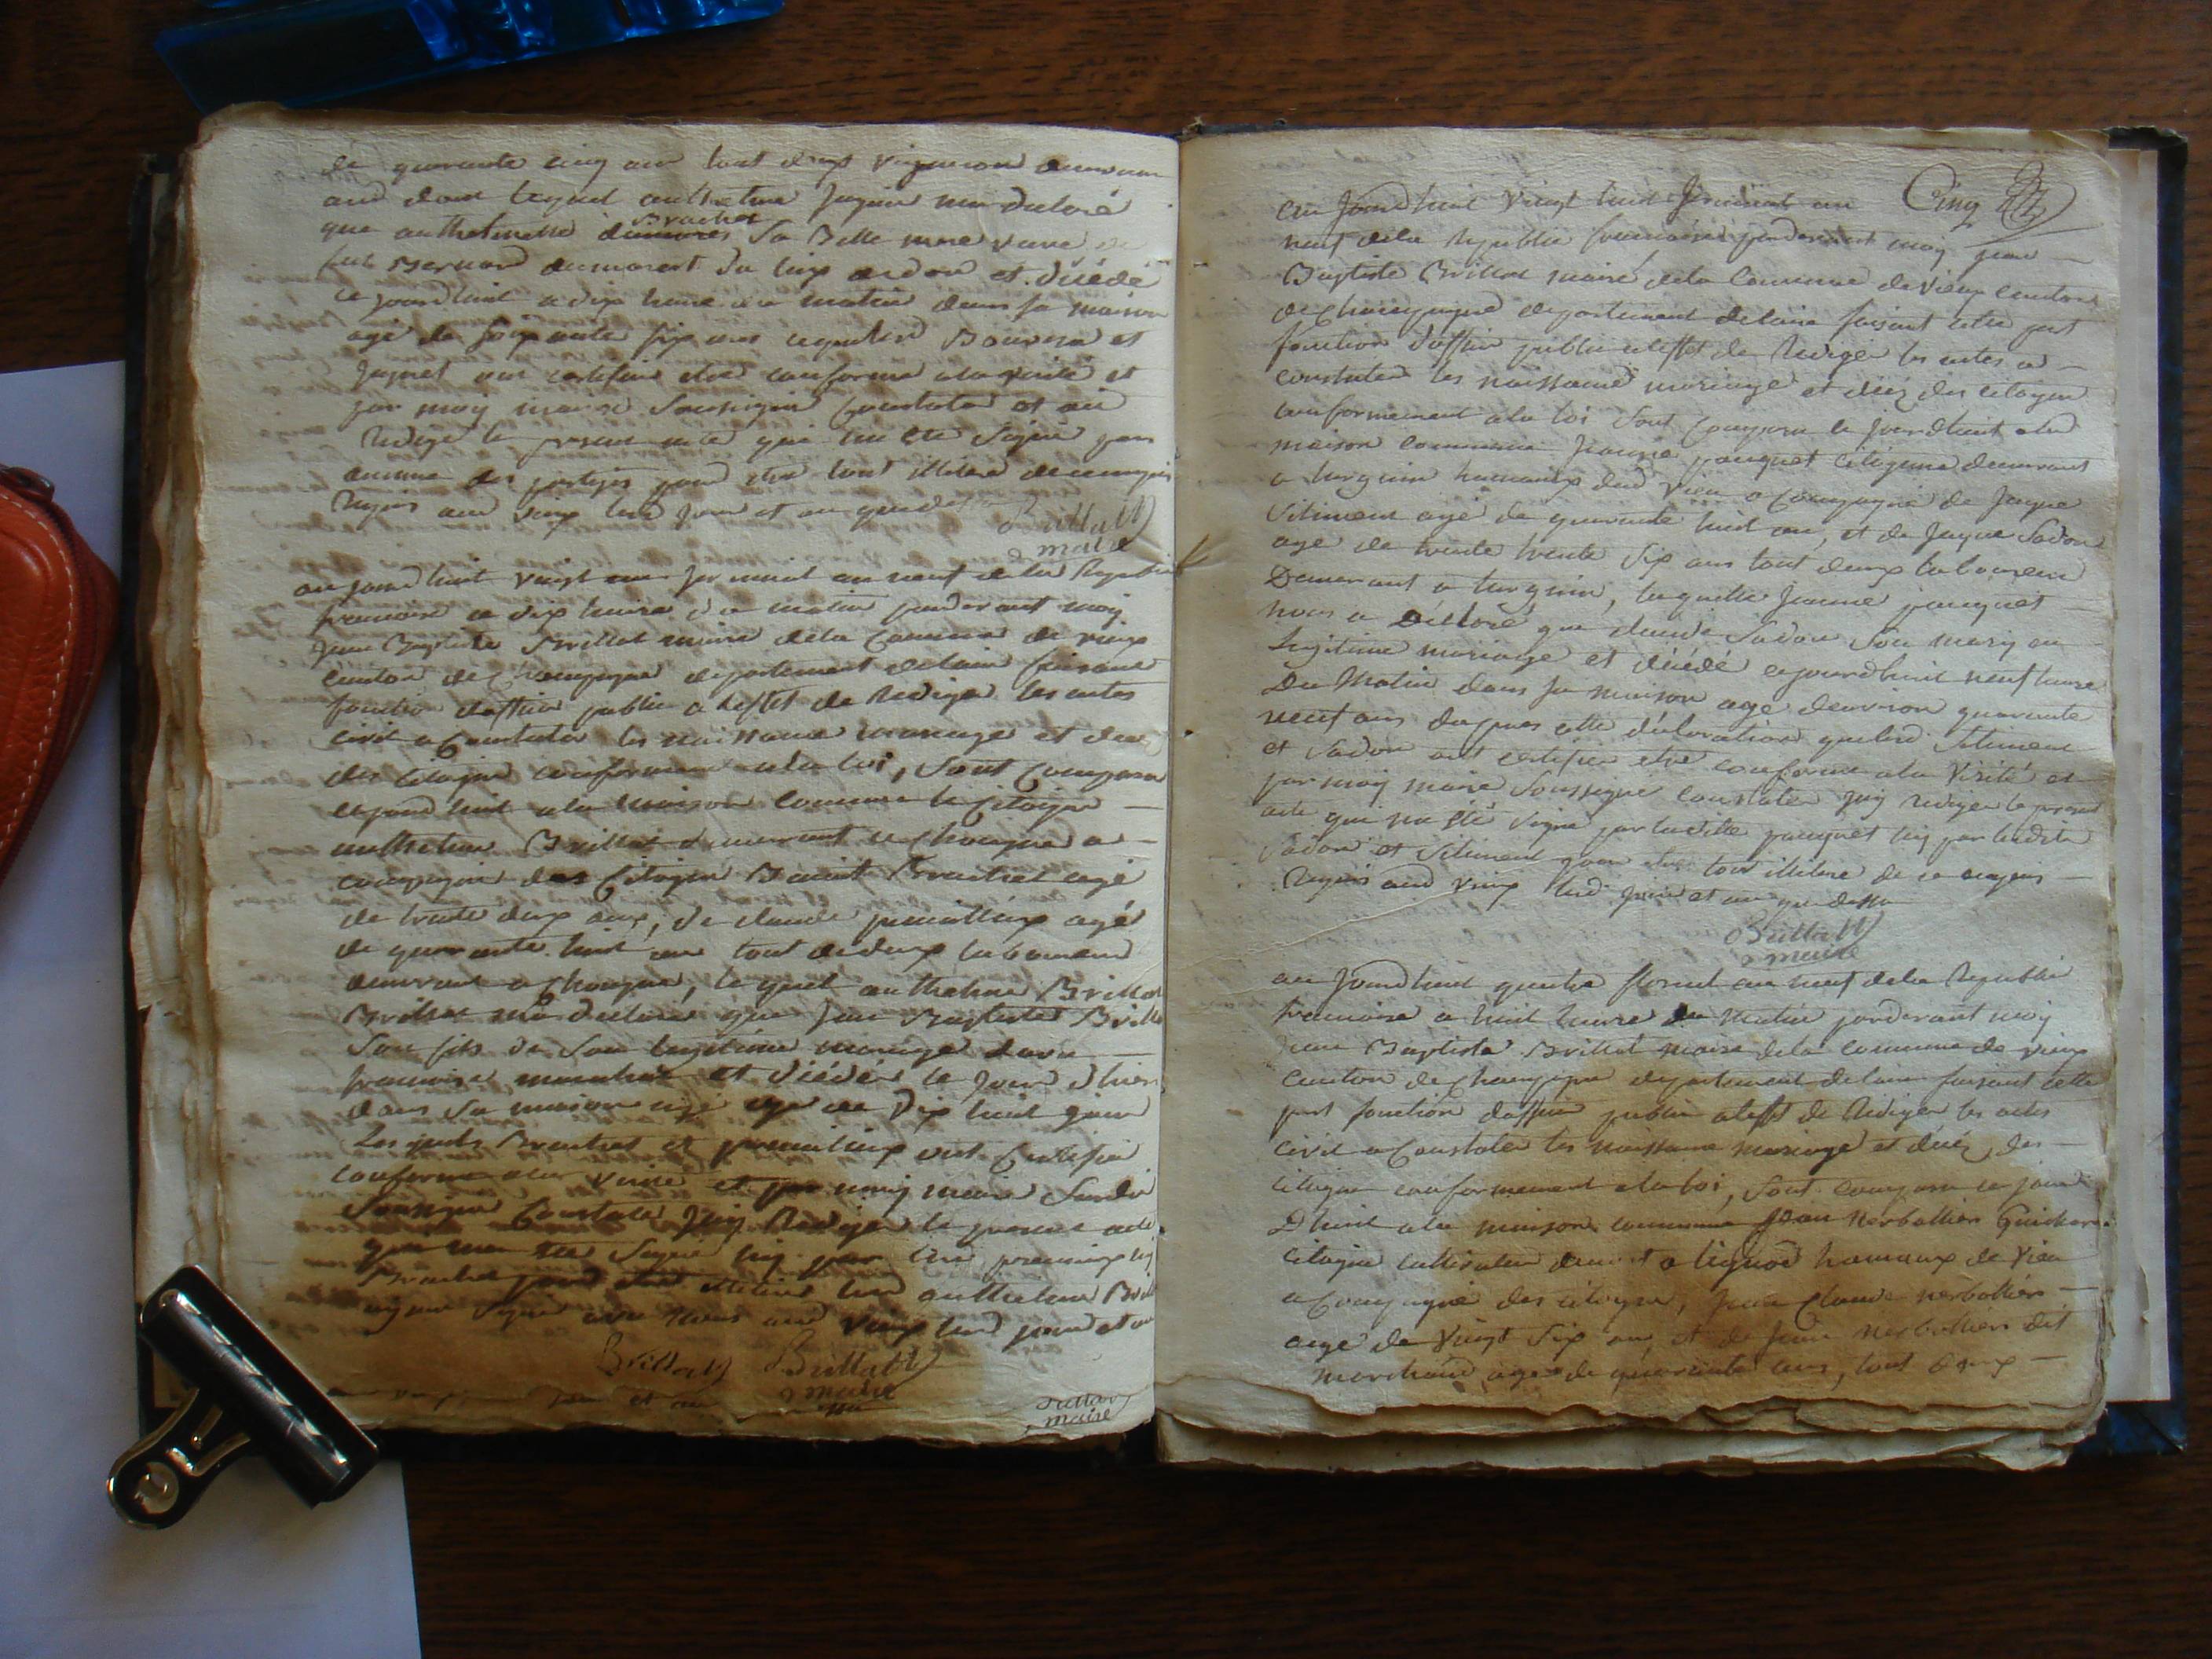 de quarante cinq ans tout deux vigneron
que anthelmette Brachet sa Belle mere veuve de
feu Bernard et décédé
ce jourdhuit a dix heure du matin dans sa maison
agé de soixante six ans Bouvier et
Juynet ont certifier etre conforme a la verité et
par moy maire sousigné Constaté et ai
Redigé le present acte qui na eté signé par
aucune des partyes pour etre tout illitere de ce enquis
Requis aud vieux lesd jour et an que dessus
Brillatt
maire
au jourdhuit vingt un germinal an neuf de la Republi
francaise a dix heure du matin pardevant moy
Jean Baptiste Brillat maire dela Commune de vieux
canton de Champagne departement delain faisant
fonction daffier public a leffet de Rediger les actes
civil a Constater les naissance mariage et decé
des Citoyen conformement a la loi, sont Comparu
cejourdhuit a la maison commune le Citoyen
anthelme Brillat demeurant a Chongne a
compagnie des Citoyen Benoit Brachet agé
de trente deux ans, de claude agé
de quarante huit ans tout dedeux laboureur
demeurant a Chongne, lequel anthelme Brillat
Brillat ma déclaré que Jean Baptiste Brilla
son fils de son legitime mariage davec
francoise et décédé le jour dhier
dans sa maison agé de dix huit
Lesquels Brachet et ont Certifier
conforme a la verité et par moy maire
sousigné Constaté jay Rediger le present acte
signé par led
Brachet pour etre illitere led anthelme Brill
ayant signé avec nous aud vieux lesd jour et an
Brillatt Brillatt
maire
jour et an
Brillat
maire
Cinq
au Jourdhuit vingt huit Germinal an
neuf dela Republic francaise pardevant moy jean
Baptiste Brillat maire dela Commune de vieux canton
de Champagne departement delain faisant cette part
fonction daffier public aleffet de Rediger les actes a
constater les naissance mariage et décéz des citoyen
conformement a la loi sont Comparu le jourdhuit ala
maison commune Jeanne pauquet Citoyenne demeurant
a lurguin hameaux dud vieu a Compagnie de Jaque
Vitiment agé de quarante huit an, et de Jaque Sadon
age de trente trente six ans tout deux laboureur
Demeurant a lurguin, laquelle Jeanne pauquet
nous a déclaré que claude Sadon son mary en
legitime mariage et décédé cejourdhuit neuf heure
Du Matin dans sa maison agé denviron quarante
neuf ans dapres cette déclaration quelesd Vitiment
et Sadon ont certifier etre conforme a la Vérité et
par moy maire soussigné constaté jay rediger le present
acte qui na été signé par ladite pauquet ny par lesdits
Sadon et Vitiment pour etre tout illitere de ce enquis
Requis aud vieux lesd jour et an que dessu
Brillatt
maire
au Jourdhuit quatre floreal an neuf dela Republic
francaise a huit heure du Matin pardevant moy
Jean Baptiste Brillat maire dela commune de vieux
canton de Champagne departement delain faisant cette
part fonction daffier public aleffet de Rediger les actes
civil a Constater les naissance mariage et décéz des
Citoyen conformement ala loi, sont comparu ce jour
Dhuit a la maison commune Jean Nerbollier Guichar
Citoyen cultivateur a lignod hameaux de Vieu
a Compagnie des citoyen, Jean Claude Nerbollier
age de Vingt six ans, et de Jean Nerbollier dit
marchand, age de quarante ans, tout deux